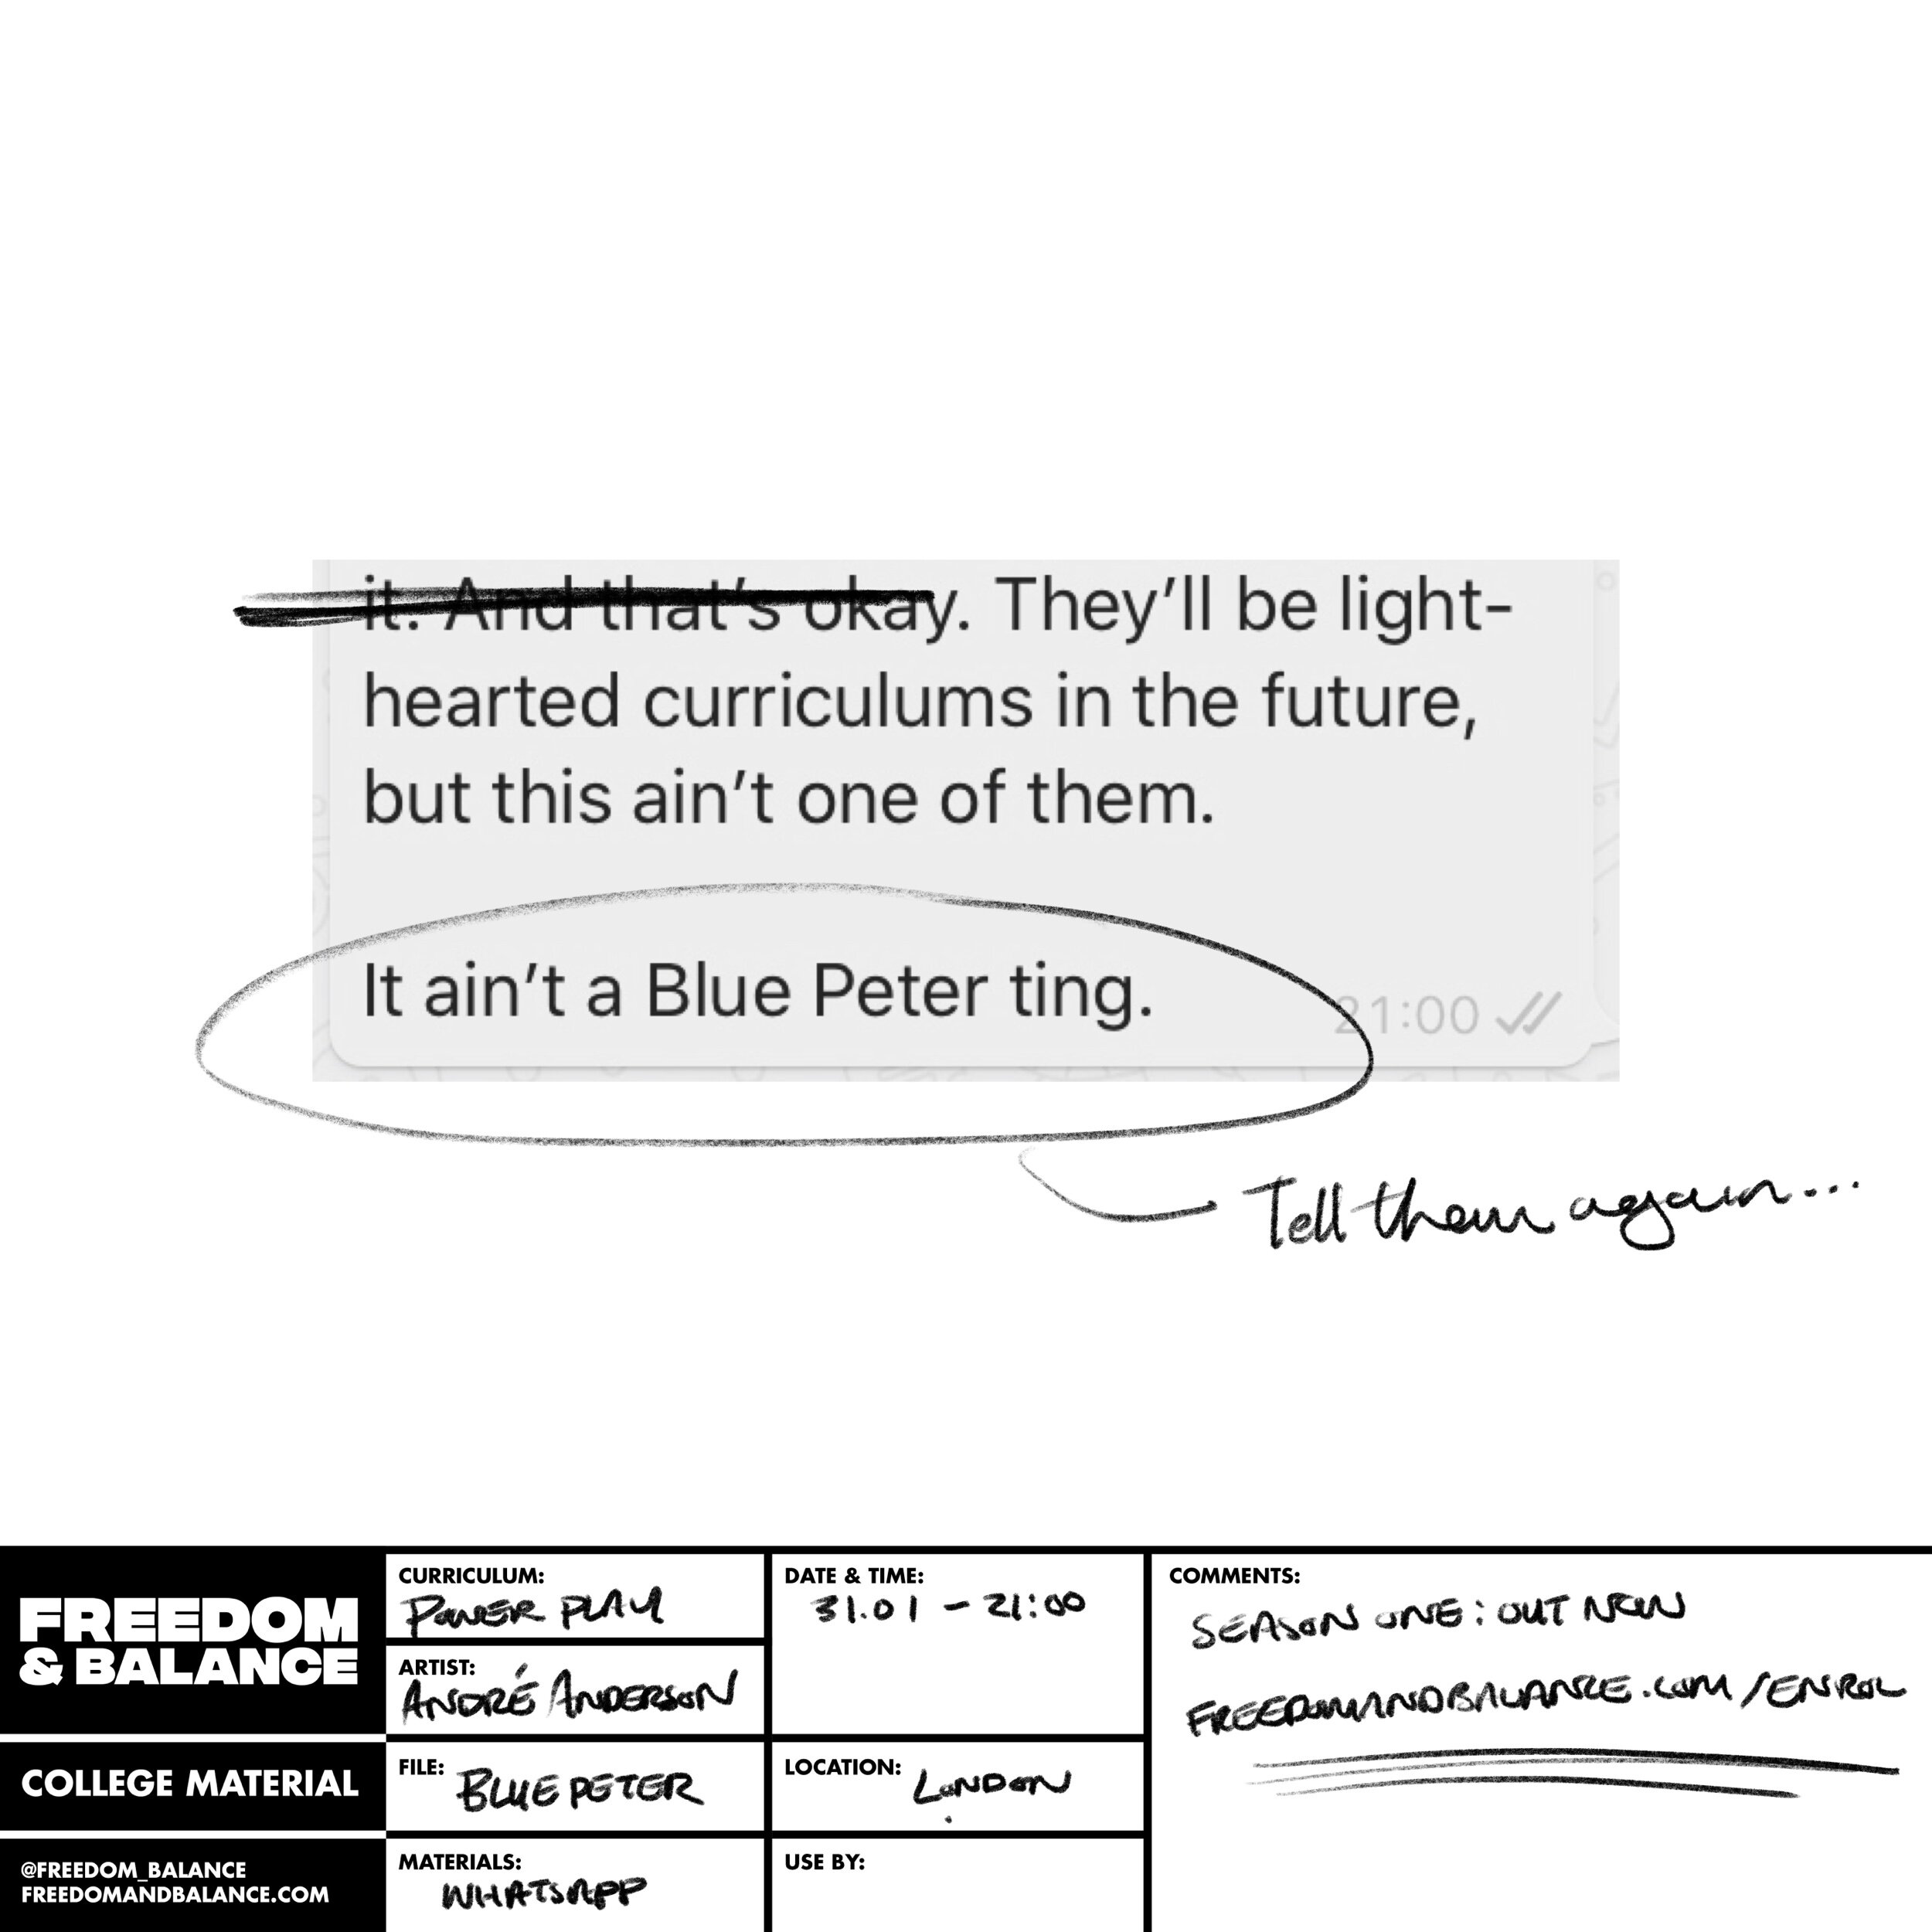 it. And that's okay. They'll be light-
hearted curriculums in the future,
but this ain't one of them.
It ain't a Blue Peter ting.
21:00
Tell them again...
FREEDOM
& BALANCE
COLLEGE MATERIAL
@FREEDOM_BALANCE
FREEDOMANDBALANCE.COM
CURRICULUM:
POWER PLAY
ARTIST:
ANDRÉ ANDERSON
FILE: BLUE PETER
MATERIALS:
WHATSAPP
DATE & TIME:
31.01 - 21:00
LOCATION: LONDON
USE BY:
COMMENTS:
SEASON ONE: OUT NOW
FREEDOMANDBALANCE.COM/ENROL